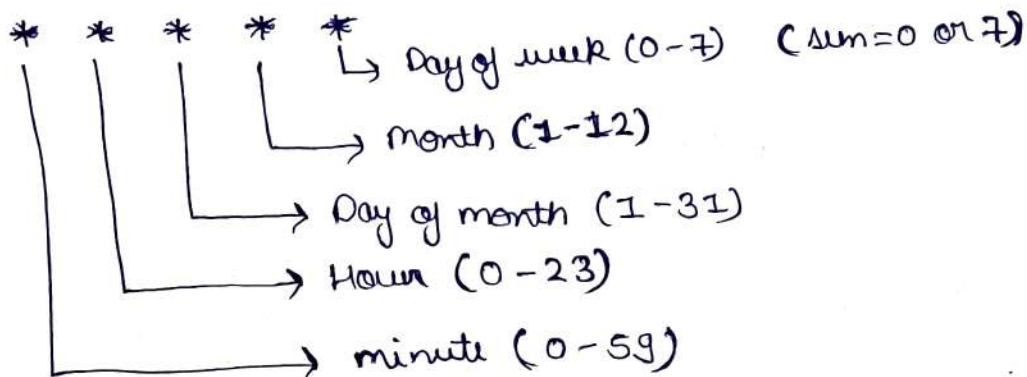 * * * * *
Day of week (0-7) (sun=0 or 7)
month (1-12)
Day of month (1-31)
Hour (0-23)
minute (0-59)